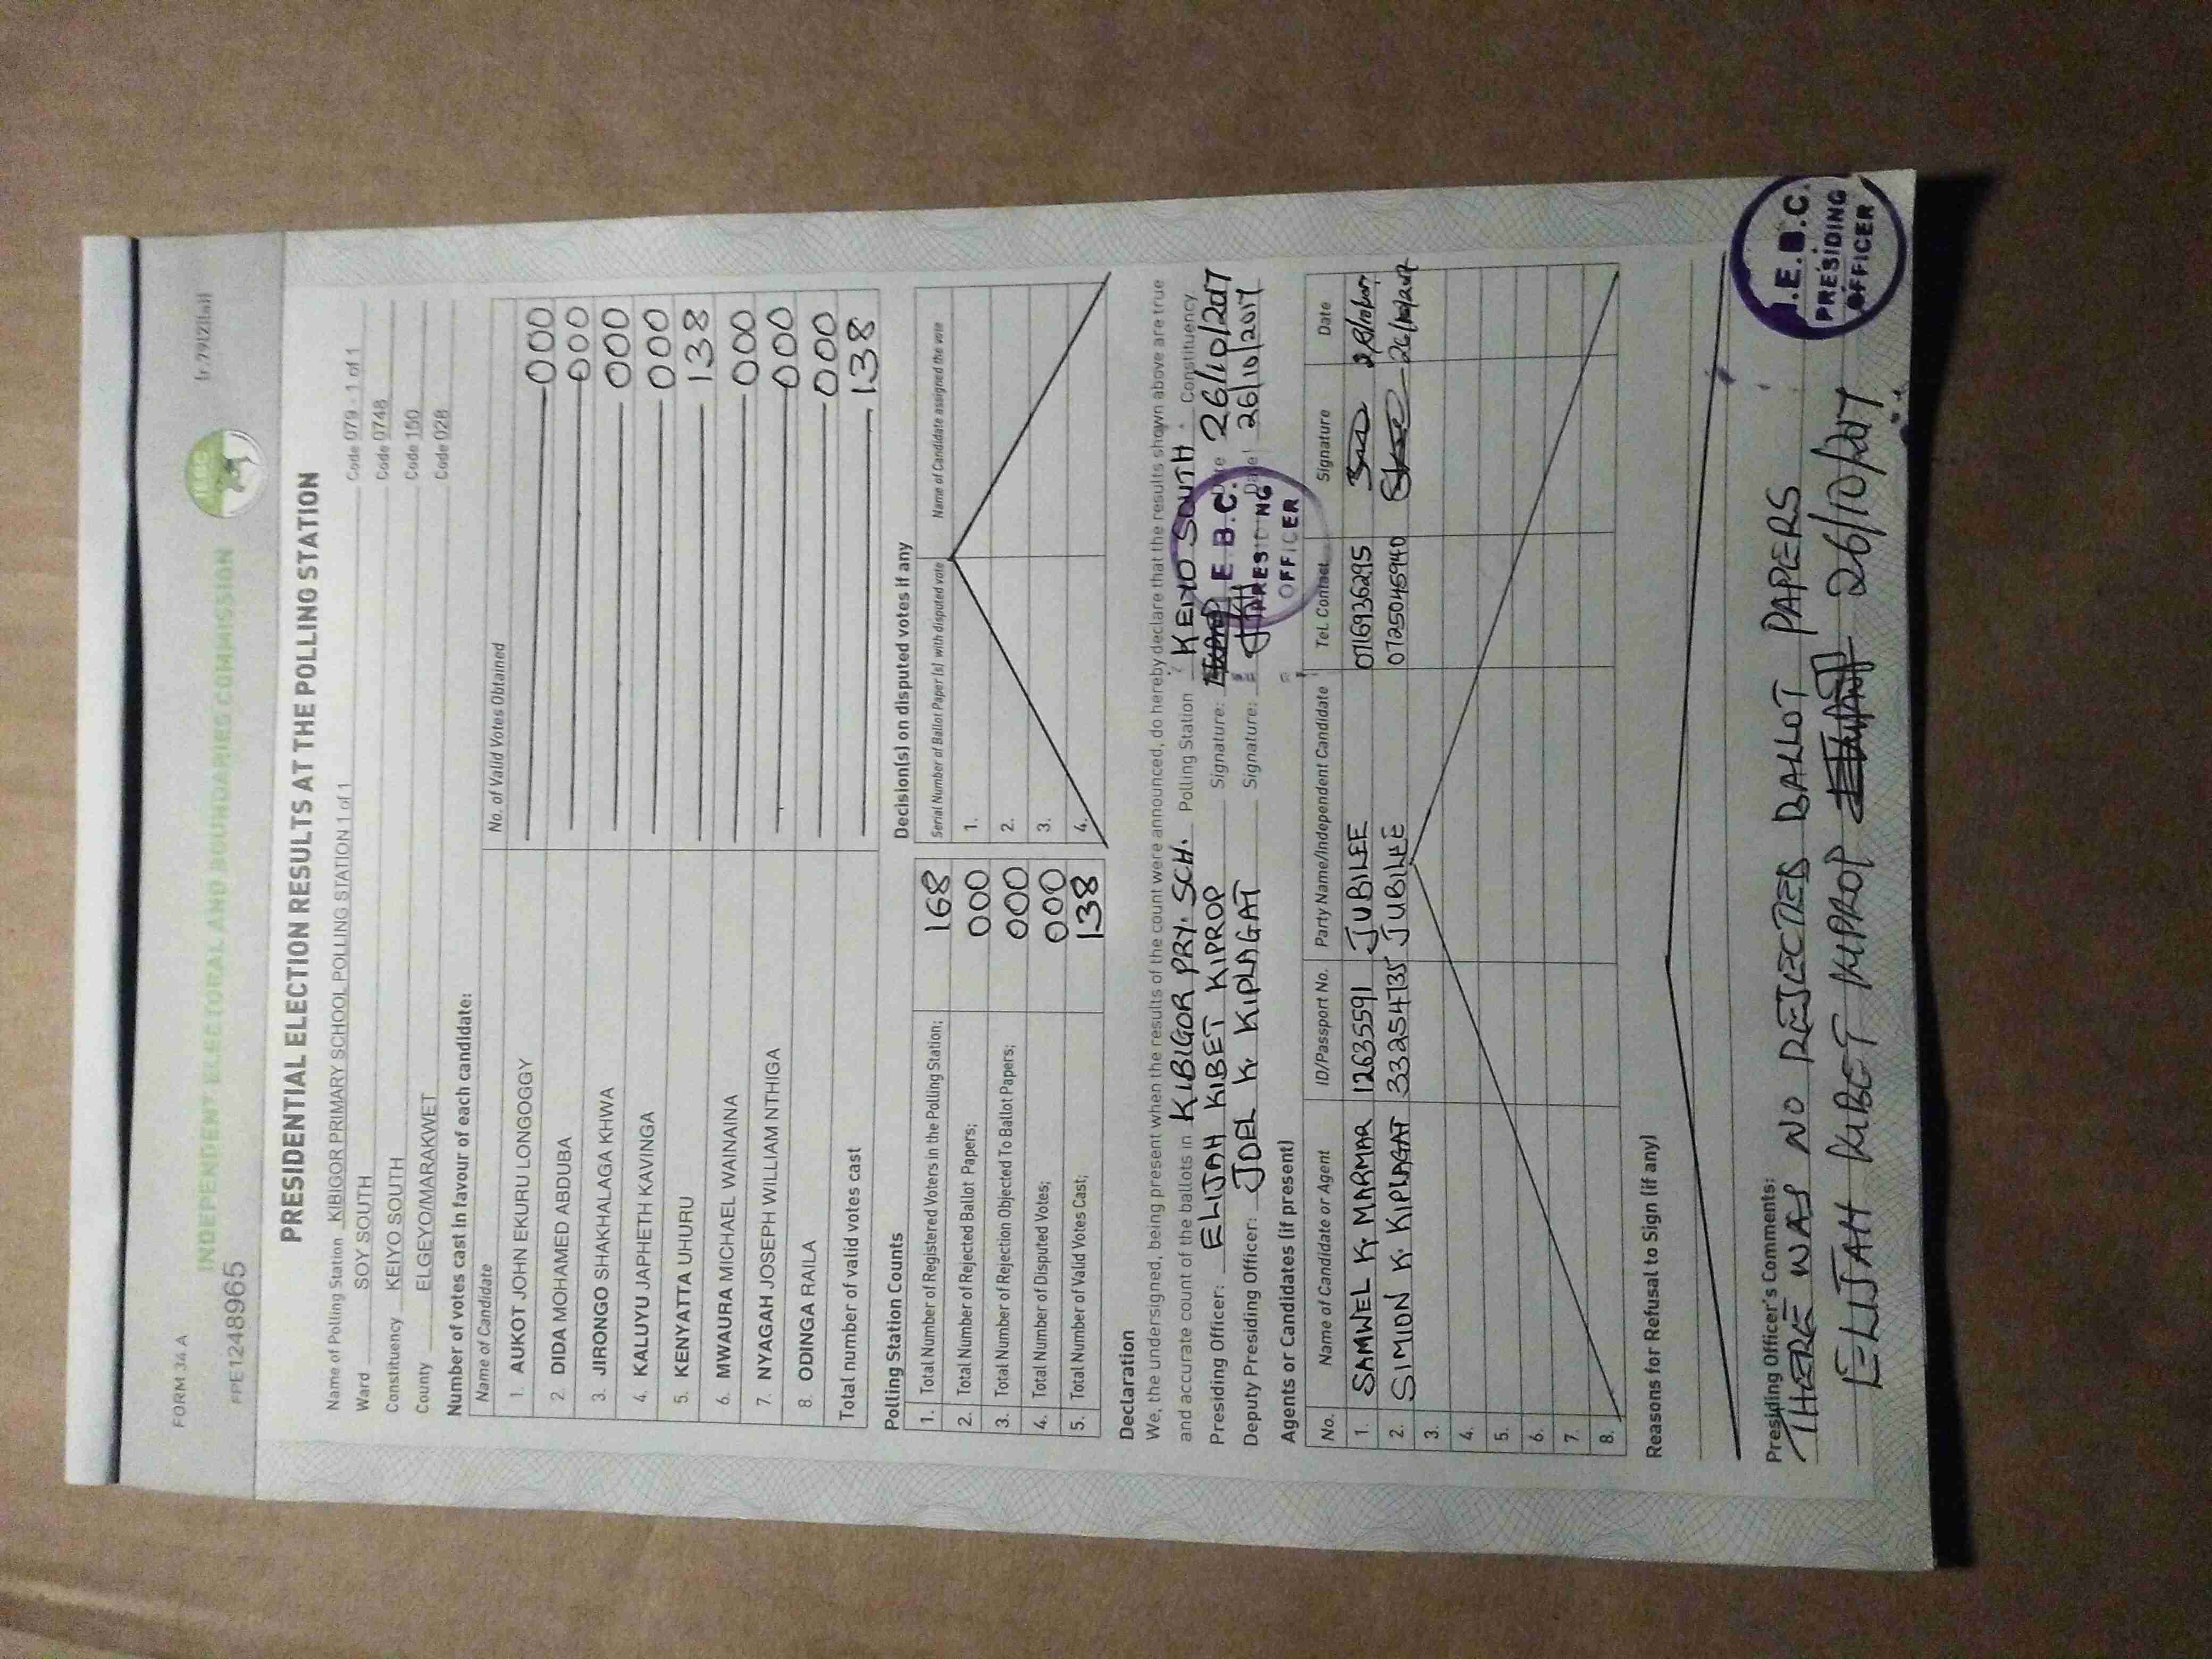 FORM 34 A
(r.79(2)(a))
INDEPENDENT ELECTORAL AND BOUNDARIES COMMISSION
IEBC
PPE1248965
PRESIDENTIAL ELECTION RESULTS AT THE POLLING STATION
Name of Polling Station KIBIGOR PRIMARY SCHOOL POLLING STATION 1 of 1 Code 079 - 1 of 1
Ward SOY SOUTH Code 0748
Constituency KEIYO SOUTH Code 150
County ELGEYO/MARAKWET Code 028
Number of votes cast in favour of each candidate:
Name of Candidate No. of Valid Votes Obtained
1. AUKOT JOHN EKURU LONGOGGY 000
2. DIDA MOHAMED ABDUBA 000
3. JIRONGO SHAKHALAGA KHWA 000
4. KALUYU JAPHETH KAVINGA 000
5. KENYATTA UHURU 138
6. MWAURA MICHAEL WAINAINA 000
7. NYAGAH JOSEPH WILLIAM NTHIGA 000
8. ODINGA RAILA 000
Total number of valid votes cast 138
Polling Station Counts
1. Total Number of Registered Voters in the Polling Station; 168
2. Total Number of Rejected Ballot Papers; 000
3. Total Number of Rejection Objected To Ballot Papers; 000
4. Total Number of Disputed Votes; 000
5. Total Number of Valid Votes Cast; 138
Decision(s) on disputed votes if any
Serial Number of Ballot Paper (s) with disputed vote Name of Candidate assigned the vote
1.
2.
3.
4.
Declaration
We, the undersigned, being present when the results of the count were announced, do hereby declare that the results shown above are true
and accurate count of the ballots in KIBIGOR PRY. SCH. Polling Station KEIYO SOUTH Constituency
Presiding Officer: ELIJAH KIBET KIPROP Signature: Date 26/10/2017
Deputy Presiding Officer: JOEL K. KIPLAGAT Signature: Date 26/10/2017
I.E.B.C.
PRESIDING
OFFICER
Agents or Candidates (if present)
No. Name of Candidate or Agent ID/Passport No. Party Name/Independent Candidate Tel. Contact Signature Date
1. SAMWEL K. MARMAR 12635591 JUBILEE 0716936295
2. SIMION K KIPLAGAT 33254735 JUBILEE 0725045940 26/10/2017
3.
4.
5.
6.
7.
8.
Reasons for Refusal to Sign (if any)
Presiding Officer's Comments:
THERE WAS NO REJECTED BALLOT PAPERS
ELIJAH KIBET KIPROP 26/10/2017
I.E.B.C.
PRESIDING
OFFICER